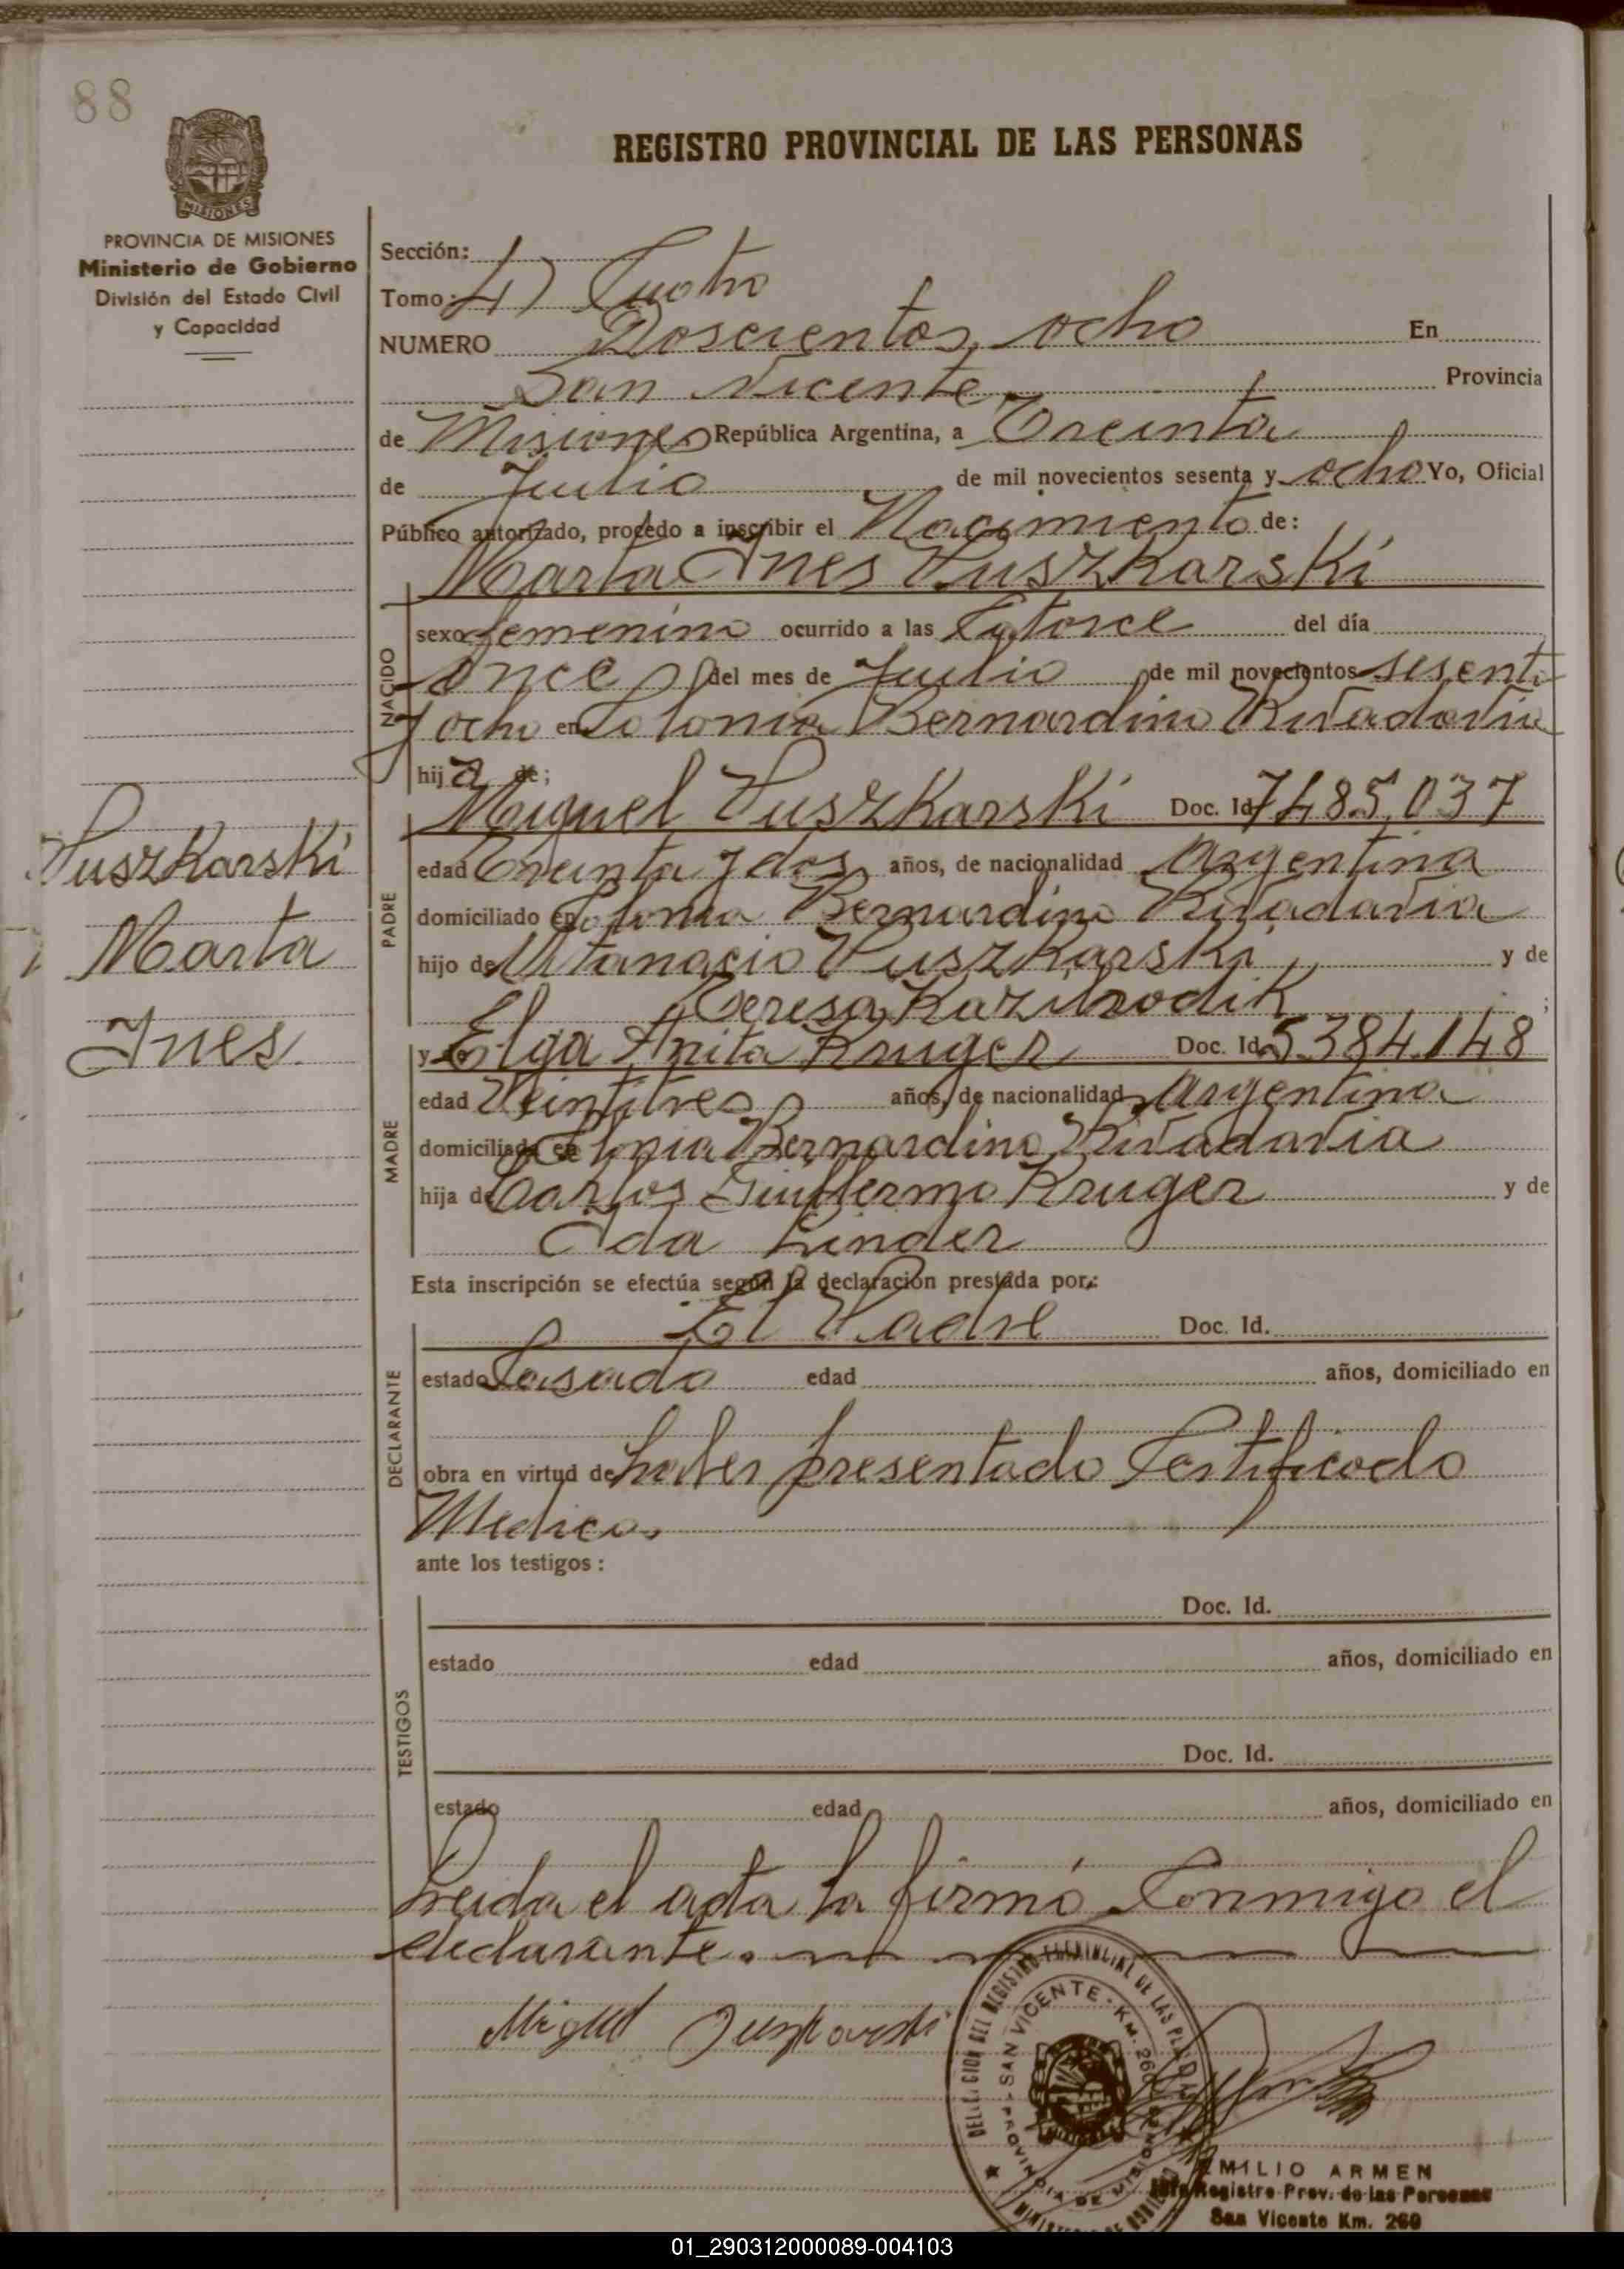 88
REGISTRO PROVINCIAL DE LAS PERSONAS
MISIONES
PROVINCIA DE MISIONES
Ministerio de Gobierno
División del Estado Civil
y Capacidad
Sección:
Tomo: 4) Cuatro
NUMERO Doscientos ocho En
San Vicente Provincia
de Misiones República Argentina, a Treinta
de Julio de mil novecientos sesenta y ocho Yo, Oficial
Público autorizado, procedo a inscribir el Nacimiento de:
Marta Ines Puszkarski
NACIDO
sexo femenino ocurrido a las Catorce del día
once del mes de Julio de mil novecientos sesenta
y ocho en Colonia Bernardino Rivadavia
hija de;
Puszkarski
Marta
Ines
PADRE
Miguel Puszkarski Doc. Id 7485.037
edad Treinta y dos años, de nacionalidad Argentina
domiciliado en Colonia Bernardino Rivadavia
hijo de Atanacio Puszkarski y de
Teresa ;
MADRE
y de Elga Anita Kruger Doc. Id. 5.384.148
edad Veintitres años, de nacionalidad Argentina
domiciliada en Colonia Bernardino Rivadavia
hija de Carlos Guillermo Kruger y de
Oda Linder
Esta inscripción se efectúa según la declaración prestada por:
DECLARANTE
El Padre Doc. Id.
estado Casado edad años, domiciliado en
obra en virtud de haber presentado Certificado
Medico.
ante los testigos:
TESTIGOS
Doc. Id.
estado edad años, domiciliado en
Doc. Id.
estado edad años, domiciliado en
Leida el acta la firmó Conmigo el
declarante.
Miguel Puszkarski
REGISTRO PROVINCIAL DE LAS
SAN VICENTE - KM. 260
PROVINCIA DE MISIONES
EMILIO ARMEN
Jefe Registro Prov. de las Personas
San Vicente Km. 260
01_290312000089-004103